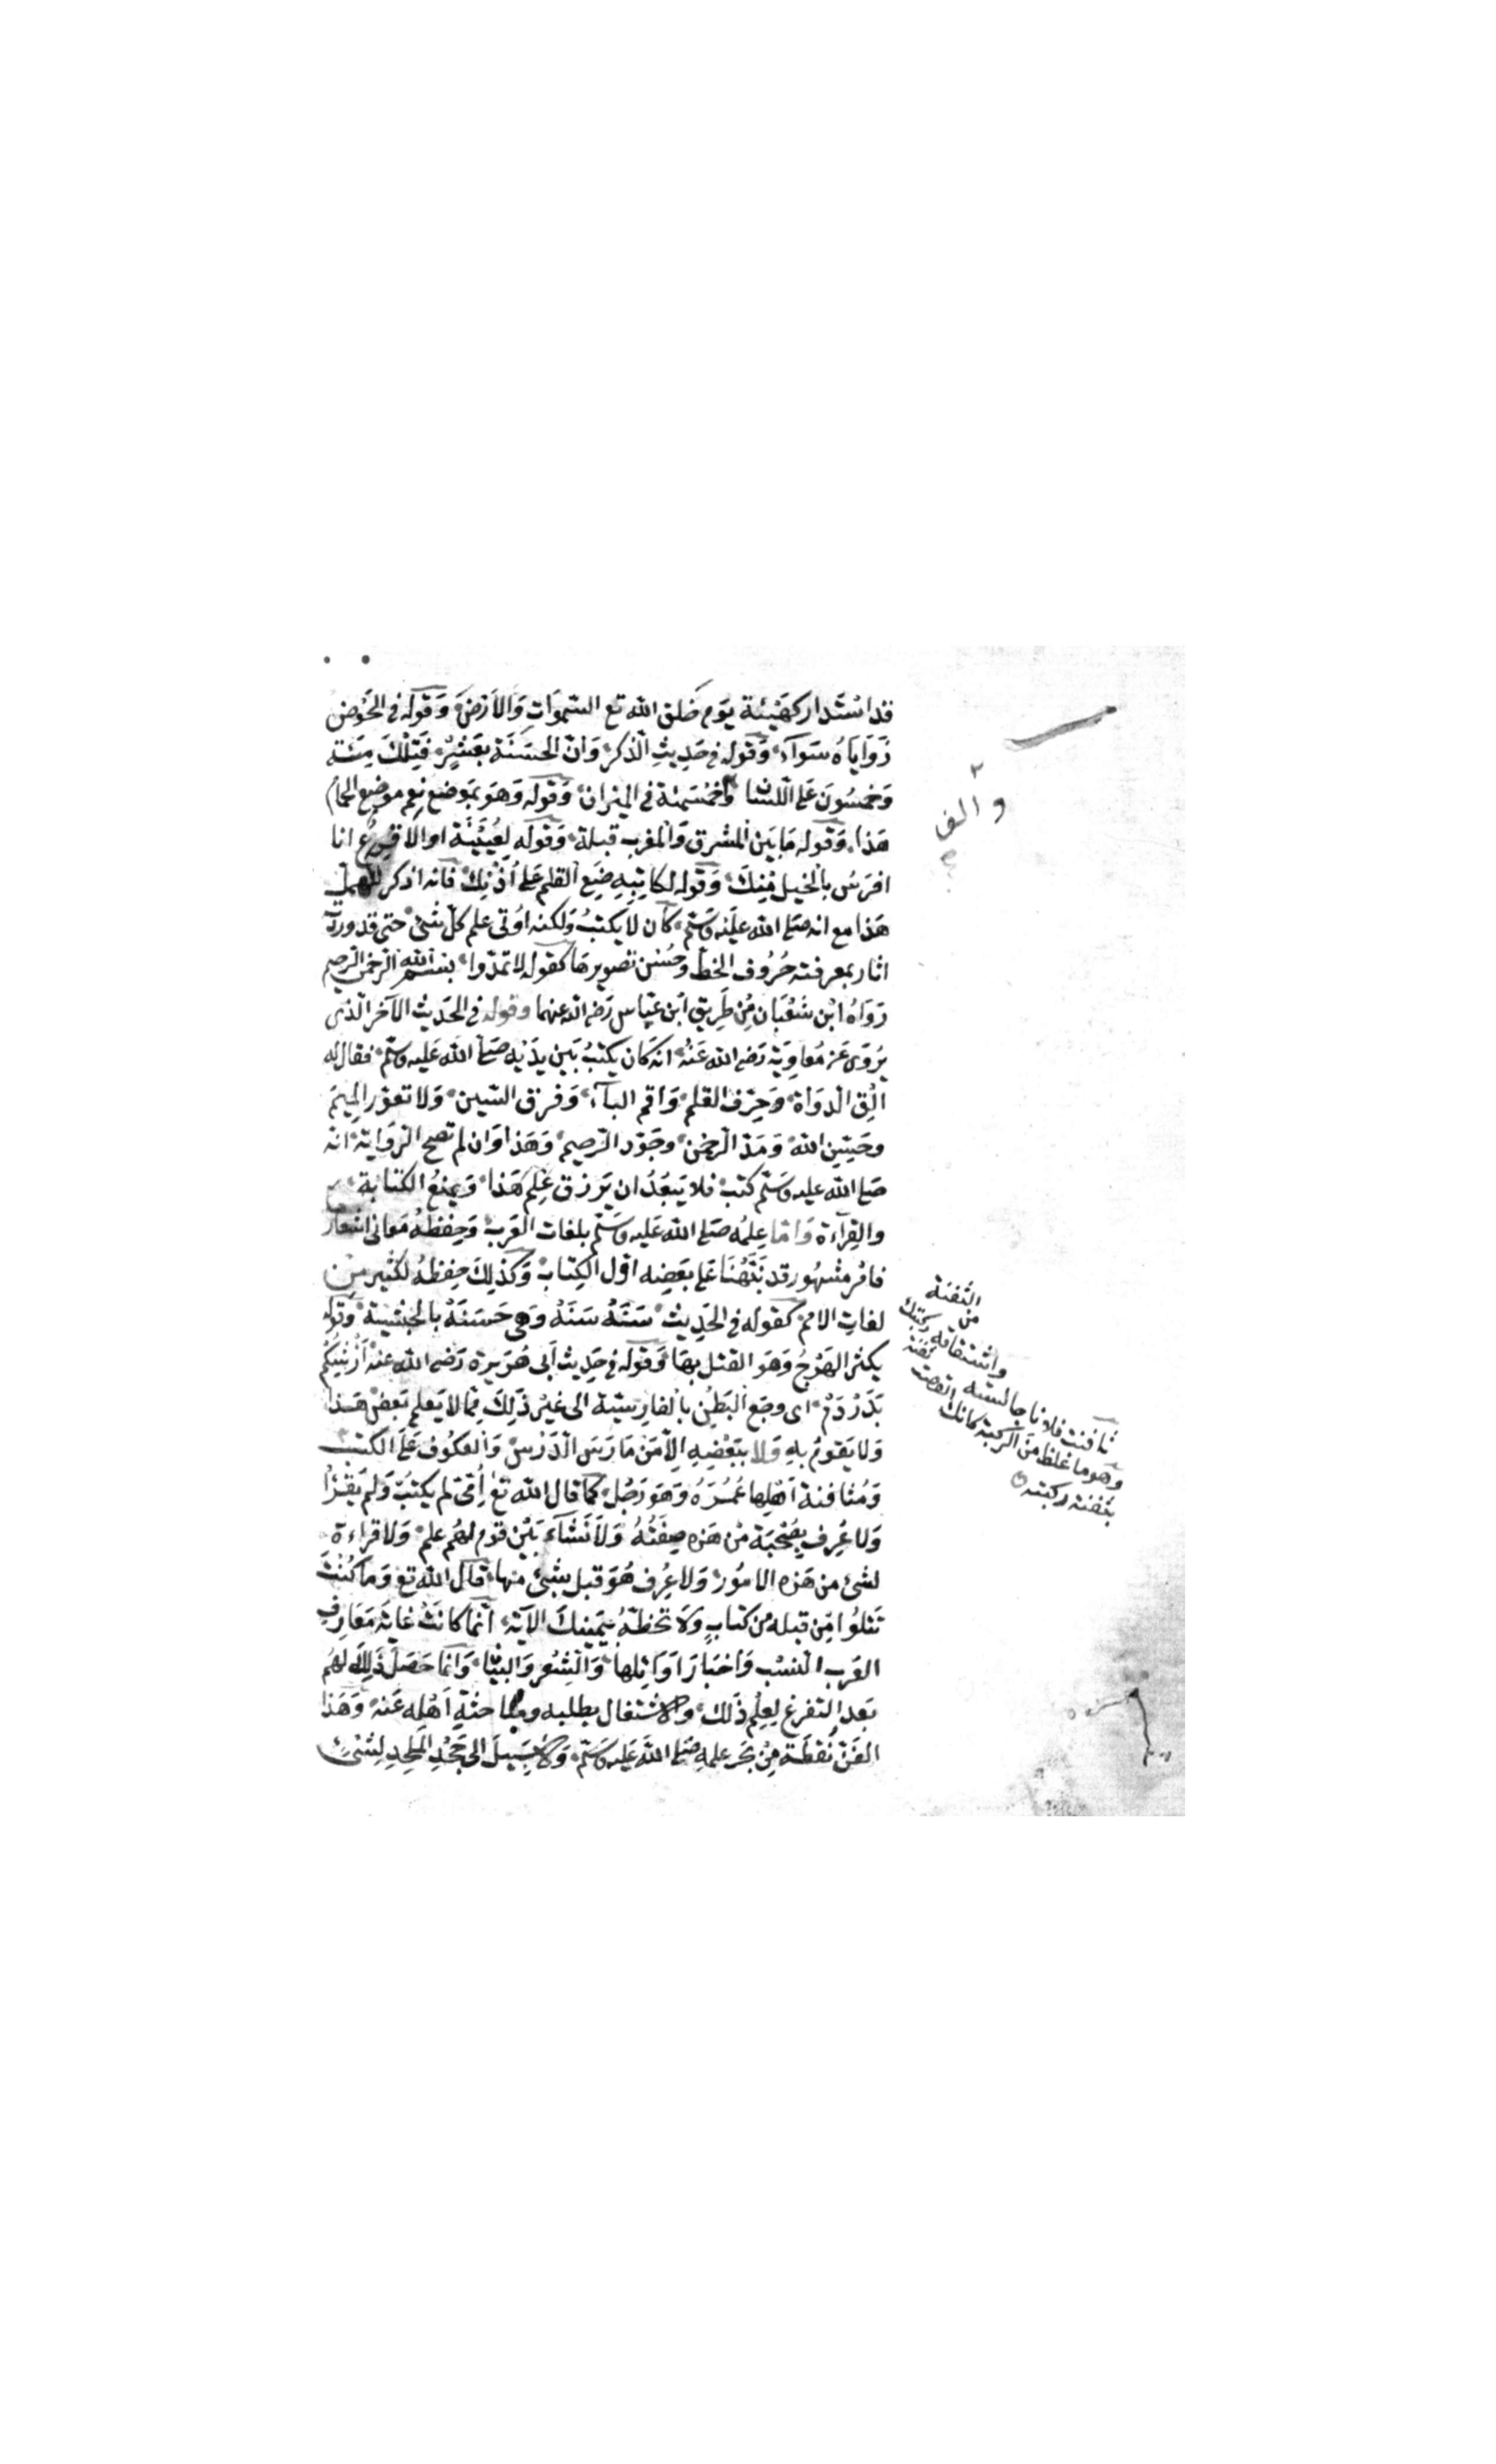 قد استدار كهيئة يوم خلق الله تع السموات والارض وقوله في الحوض
زواياه سوآء وقوله في حديث الذكر وان الحسنة بعشر فتلك مئة
وخمسون على اللسان وخمسمئة في الميزان وقوله وهو بموضع نعم موضع الحمام
هذا وقوله ما بين المشرق والمغرب قبلة وقوله لعيينة او الاقرع انا
افرس بالخيل منك وقوله لكاتبه ضع القلم على اذنك فانه اذكر للممل
هذا مع انه صلى الله عليه وسلم كان لا يكتب ولكنه اوتى علم كل شئ حتى قد وردت
اثار بمعرفته حروف الخط وحسن تصويرها كقوله لا تمدوا بسم الله الرحمن الرحيم
رواه ابن شعبان من طريق ابن عباس رضى الله عنهما وقوله في الحديث الآخر الذي
يروى عن معاوية رضى الله عنه انه كان يكتب بين يديه صلى الله عليه وسلم فقال له
الق الدواة وحرف القلم واقم البآء وفرق السين ولا تعور الميم
وحسن الله ومد الرحمن وجود الرحيم وهذا وان لم تصح الرواية انه
صلى الله عليه وسلم كتب فلا يبعد ان يرزق علم هذا ويمنع الكتابة
والقرآءة واما علمه صلى الله عليه وسلم بلغات العرب وحفظه معانى اشعار
فامر مشهور قد نبهنا على بعضه اول الكتاب وكذلك حفظه لكثير من
لغات الامم كقوله في الحديث سنه سنه وهى حسنة بالحبشية وقوله
يكثر الهرج وهو القتل بها وقوله في حديث ابى هريرة رضى الله عنه اشنبكم
بدردم اى وجع البطن بالفارسية الى غير ذلك مما لا يعلم بعض هذا
ولا يقوم به ولا ببعضه الا من مارس الدرس والعكوف على الكتب
ومثافنة اهلها عمره وهو رجل كما قال الله تع امى لم يكتب ولم يقرأ
ولا عرف بصحبة من هذه صفته ولا نشآء بين قوم لهم علم ولا قراءة
لشئ من هذه الامور ولا عرف هو قبل بشئ منها قال الله تع وما كنت
تتلوا من قبله من كتاب ولا تخطه بيمينك الآية انما كانت غاية معارف
العرب النسب واخبار اوائلها والشعر والبيان وانما حصل ذلك لهم
بعد التفرغ لعلم ذلك والاشتغال بطلبه ومباحثة اهله عنه وهذا
الفن نقطة من بحر علمه صلى الله عليه وسلم ولا سبيل الى جحد الملحد لشئ
والف
ثافنت فلانا جالسته واشتقاقه من الثفنة
وهو ما غلظ من الركبة كانك الصقت ثفنة ركبتك
بثفنة ركبته